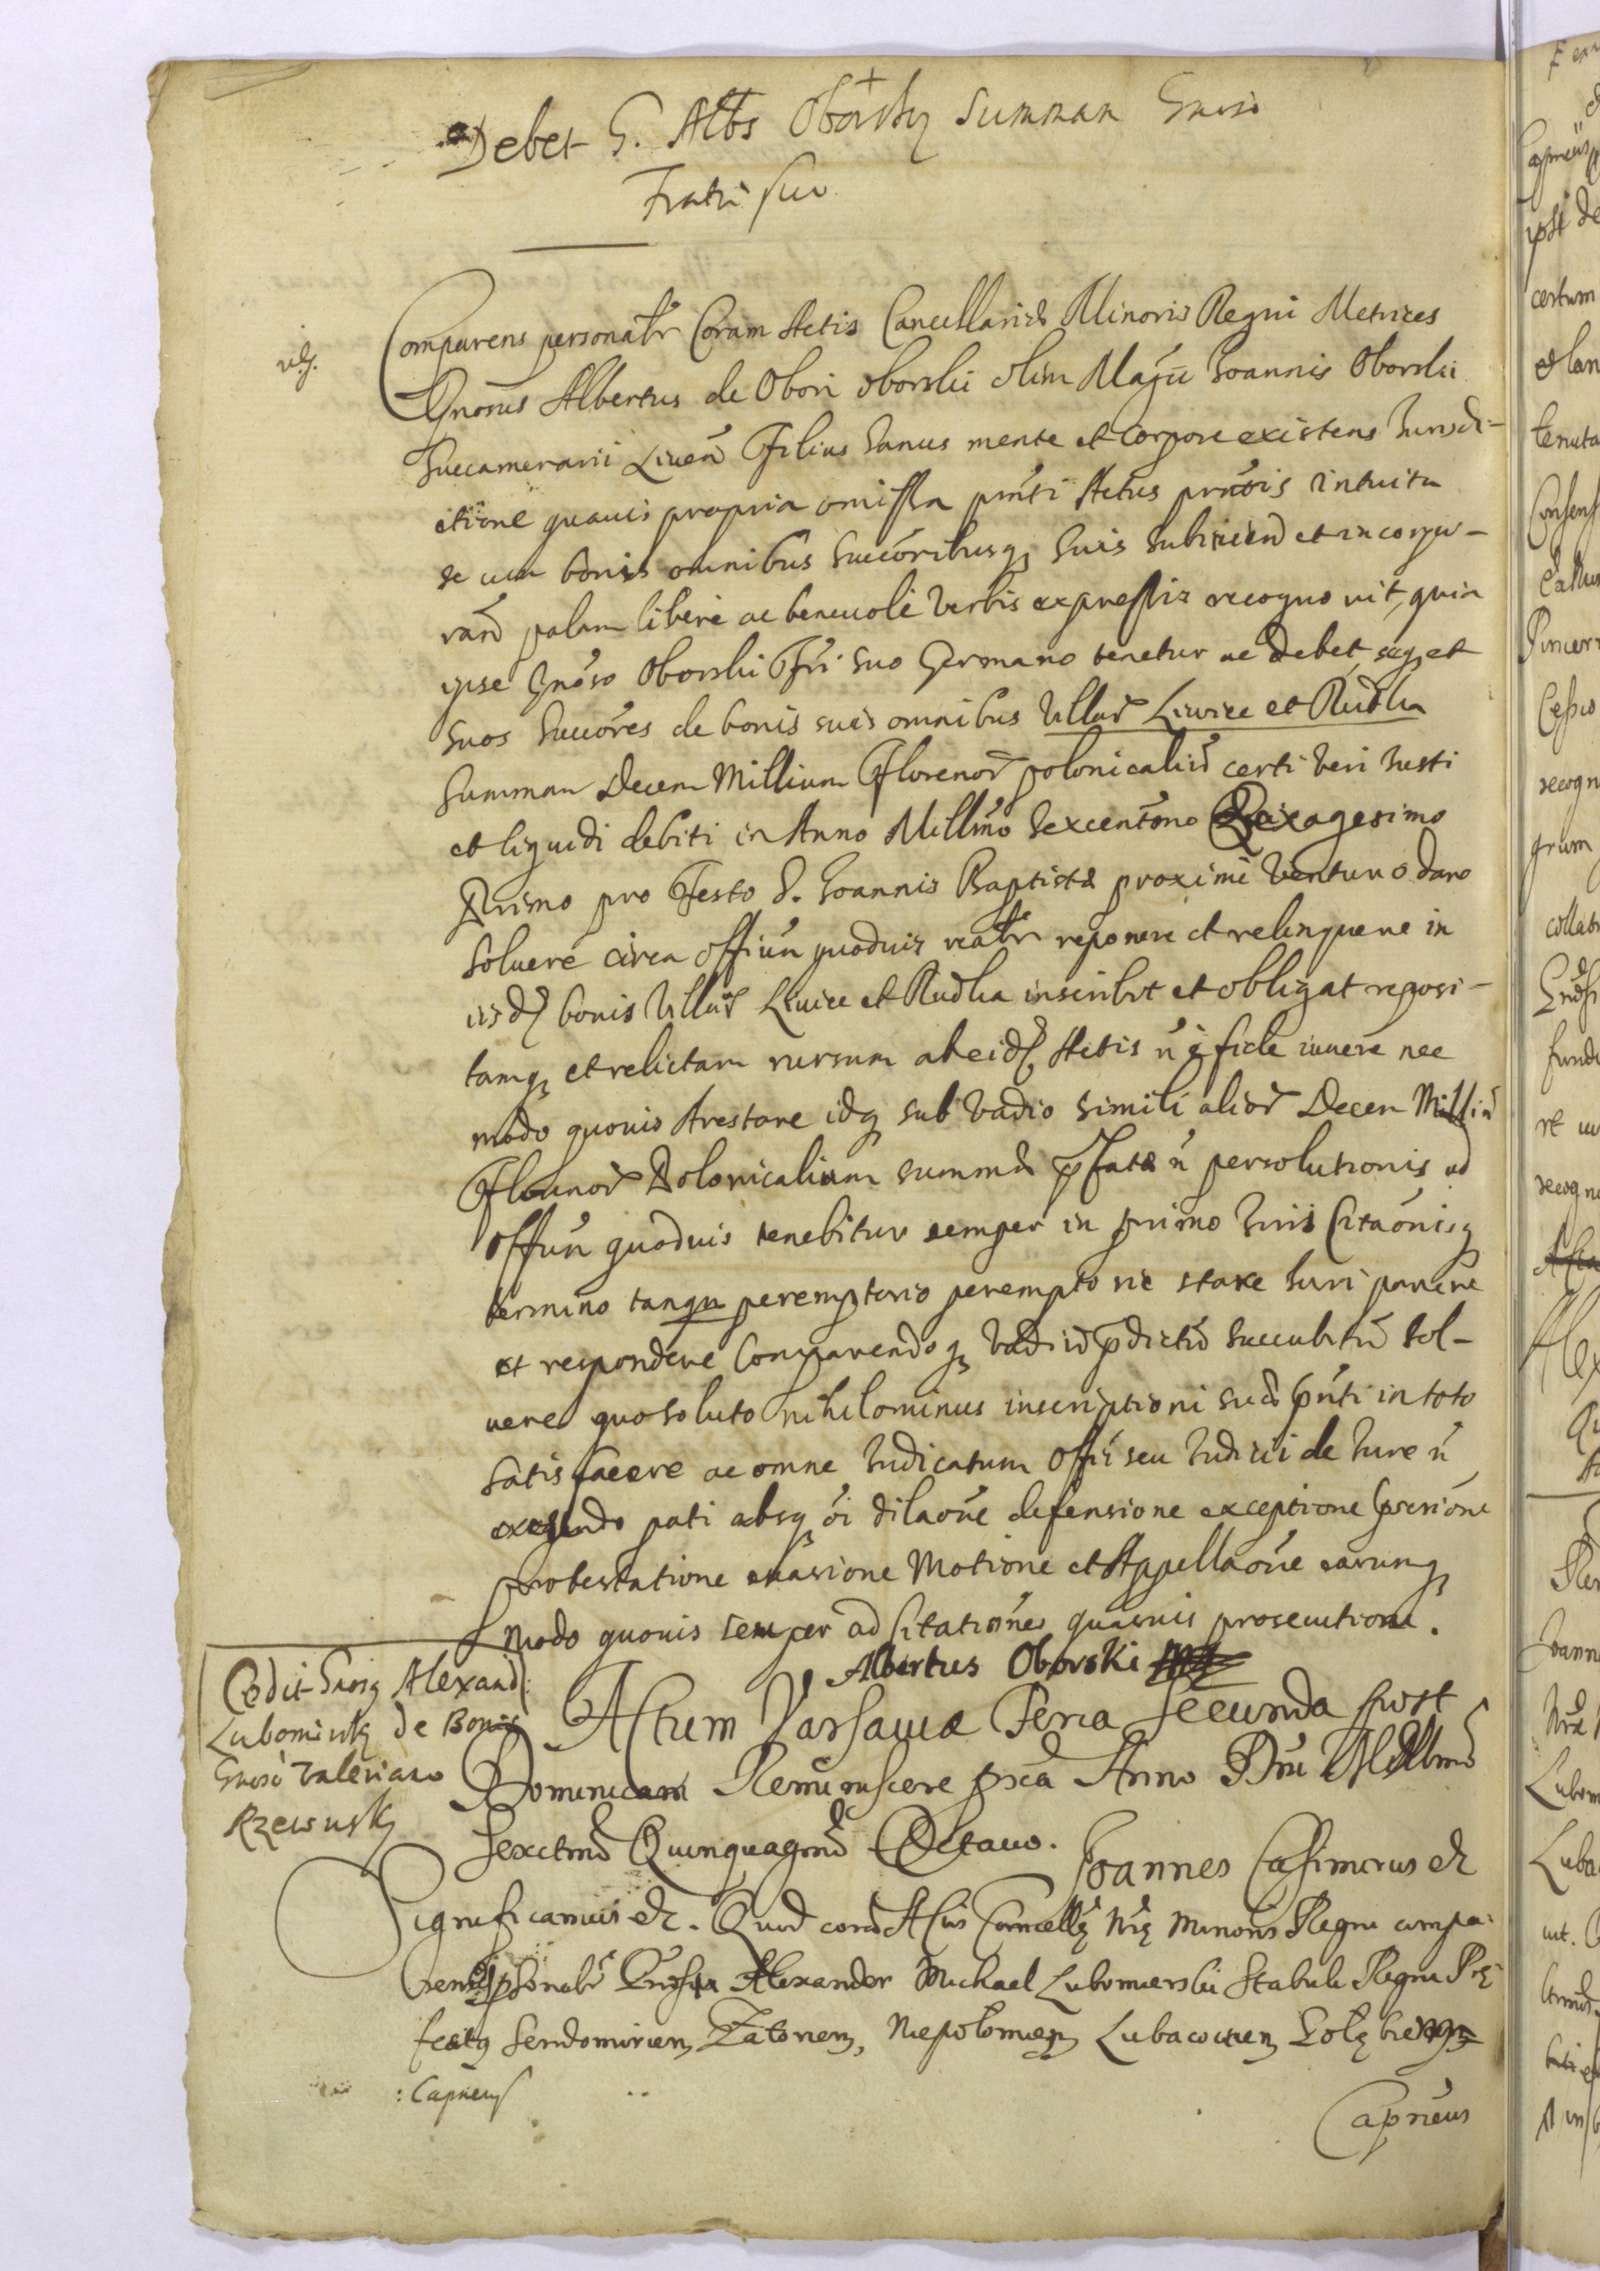 Debet G. Albs Oborsky Summam Gnoso
Fratri suo
Comparens personalr Coram Actis Cancellariae Minoris Regni Metrices
Gnosus Albertus de Obori Oborski olim Magci Joannis Oborski
Succamerarii Liven Filius sanus mente et Corpore existens Jurisdi-
ctione quavis propria omissa pnti Actus pntis intuitu
se cum bonis omnibus Succoribusq suis subiicien et incorpo-
ran palam libere ac benevole Verbis expressis recognovit, quia
ipse Gnoso Oborski Fri suo Germano tenetur ac debet, seq et
suos Succores de bonis suis omnibus Villar Liwice et Rudka
Summam Decem Millium Florenor polonicaliu certi veri Justi
et liquidi debiti in Anno Millmo Sexcentmo Sexagesimo
Primo pro Festo S. Joannis Baptistae proxime Venturo dare
soluere circa Offiun quoduis realr reponere et relinquere in
iisd bonis Villar Liwice et Rudka inscribit et obligat reposi-
tamq et relictam rursum ab eisd Actis n
modo quouis Arestare idq sub Vadio simili alior Decem Milliu
Florenor Polonicalium summae pfatae n persolutionis ad
Offiun quoduis tenebitur semper in primo Juris Citaonisq
termino tanqm peremptorio peremptorie stare Juri parere
et respondere Comparendoq Vadiu pdictu succubitu sol-
uere quo soluto nihilominus inscriptioni suae pnti in toto
satisfacere ac omne Judicatum Offii seu Judicii de Jure n
exeundo pati absq oi dilaone defensione exceptione
protestatione euasione Motione et Appellaone earumq
modo quouis semper ad Citationes quasuis prosecutione.
Albertus Oborski
Cedit Gnosq Alexand:
Lubomirsky de Bonis
Gnoso Valeriano
Rzewusky
Actum Varsaviae Feria Secunda post
Dominicam Reminiscere pxa Anno Dni Millmo
Sexctmo Quinquagmo Octauo.
Joannes Casimirus etc
Significamus etc. Quod cora Actis Cancellę Nrę Minoris Regni compa:
rens psonalr Alexander Michael Lubomierski Stabuli Regni Prę
fectq Sendomirien, Zatorien, Niepolomien
: Capneus
Capneus